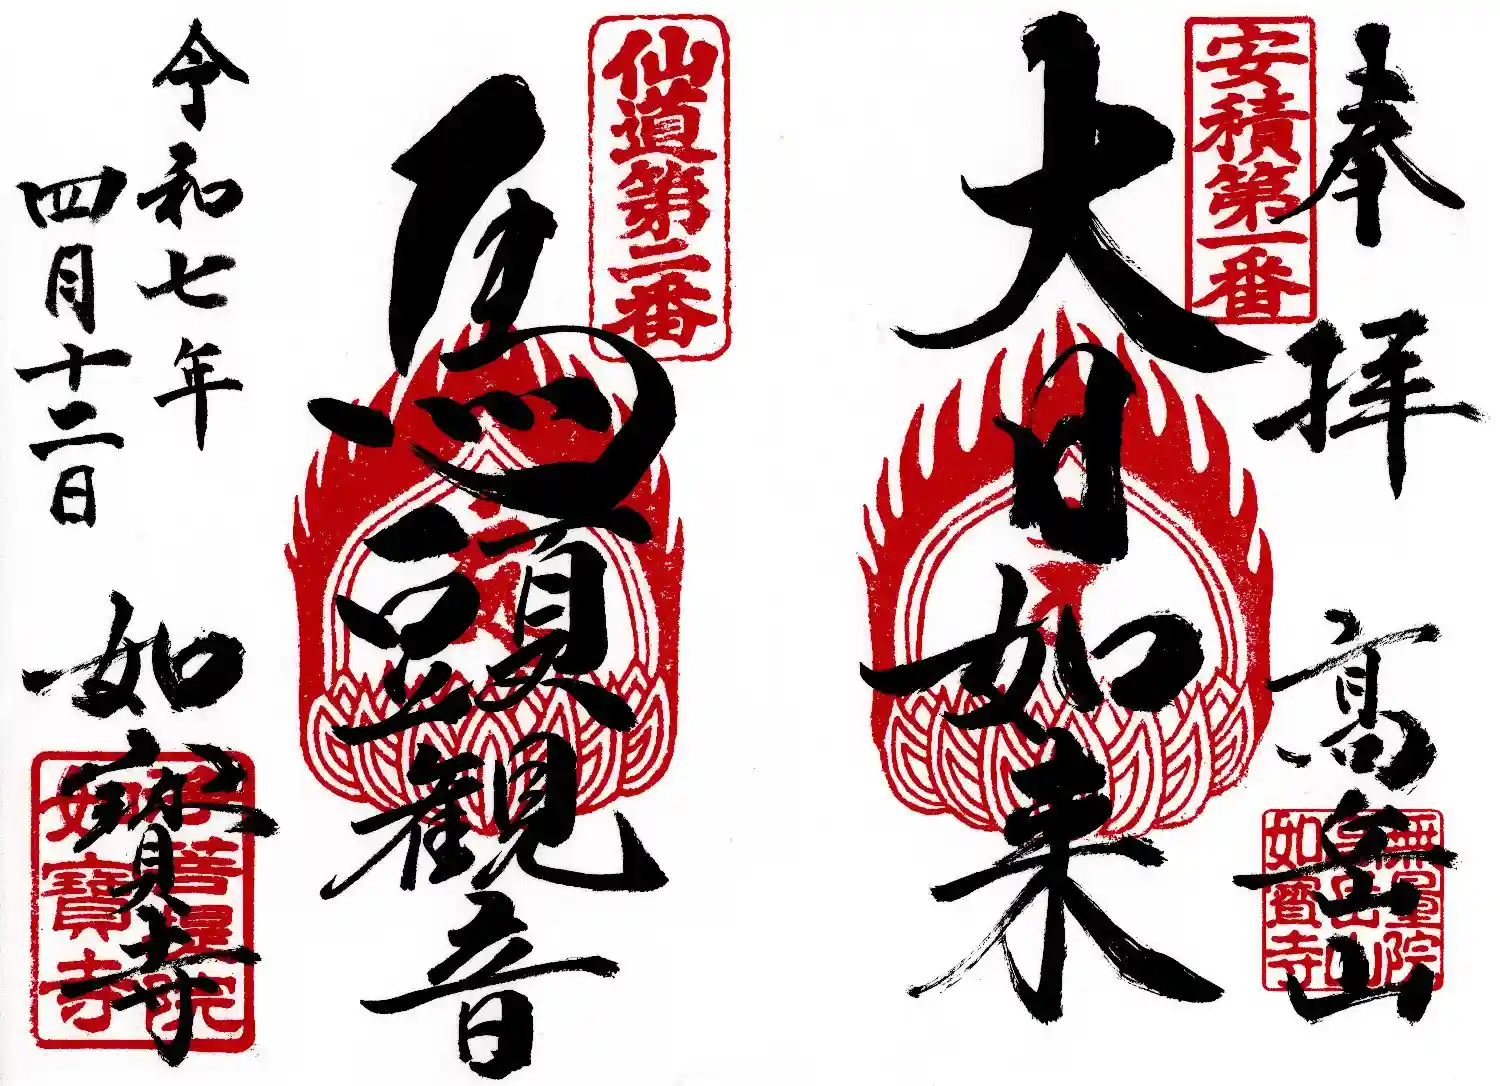 奉拝
高岳山
安積第一番
大日如来
無量院
高岳山
如寶寺
仙道第二番
馬頭観音
令和七年
四月十二日
如寳寺
菩提院
如寶寺